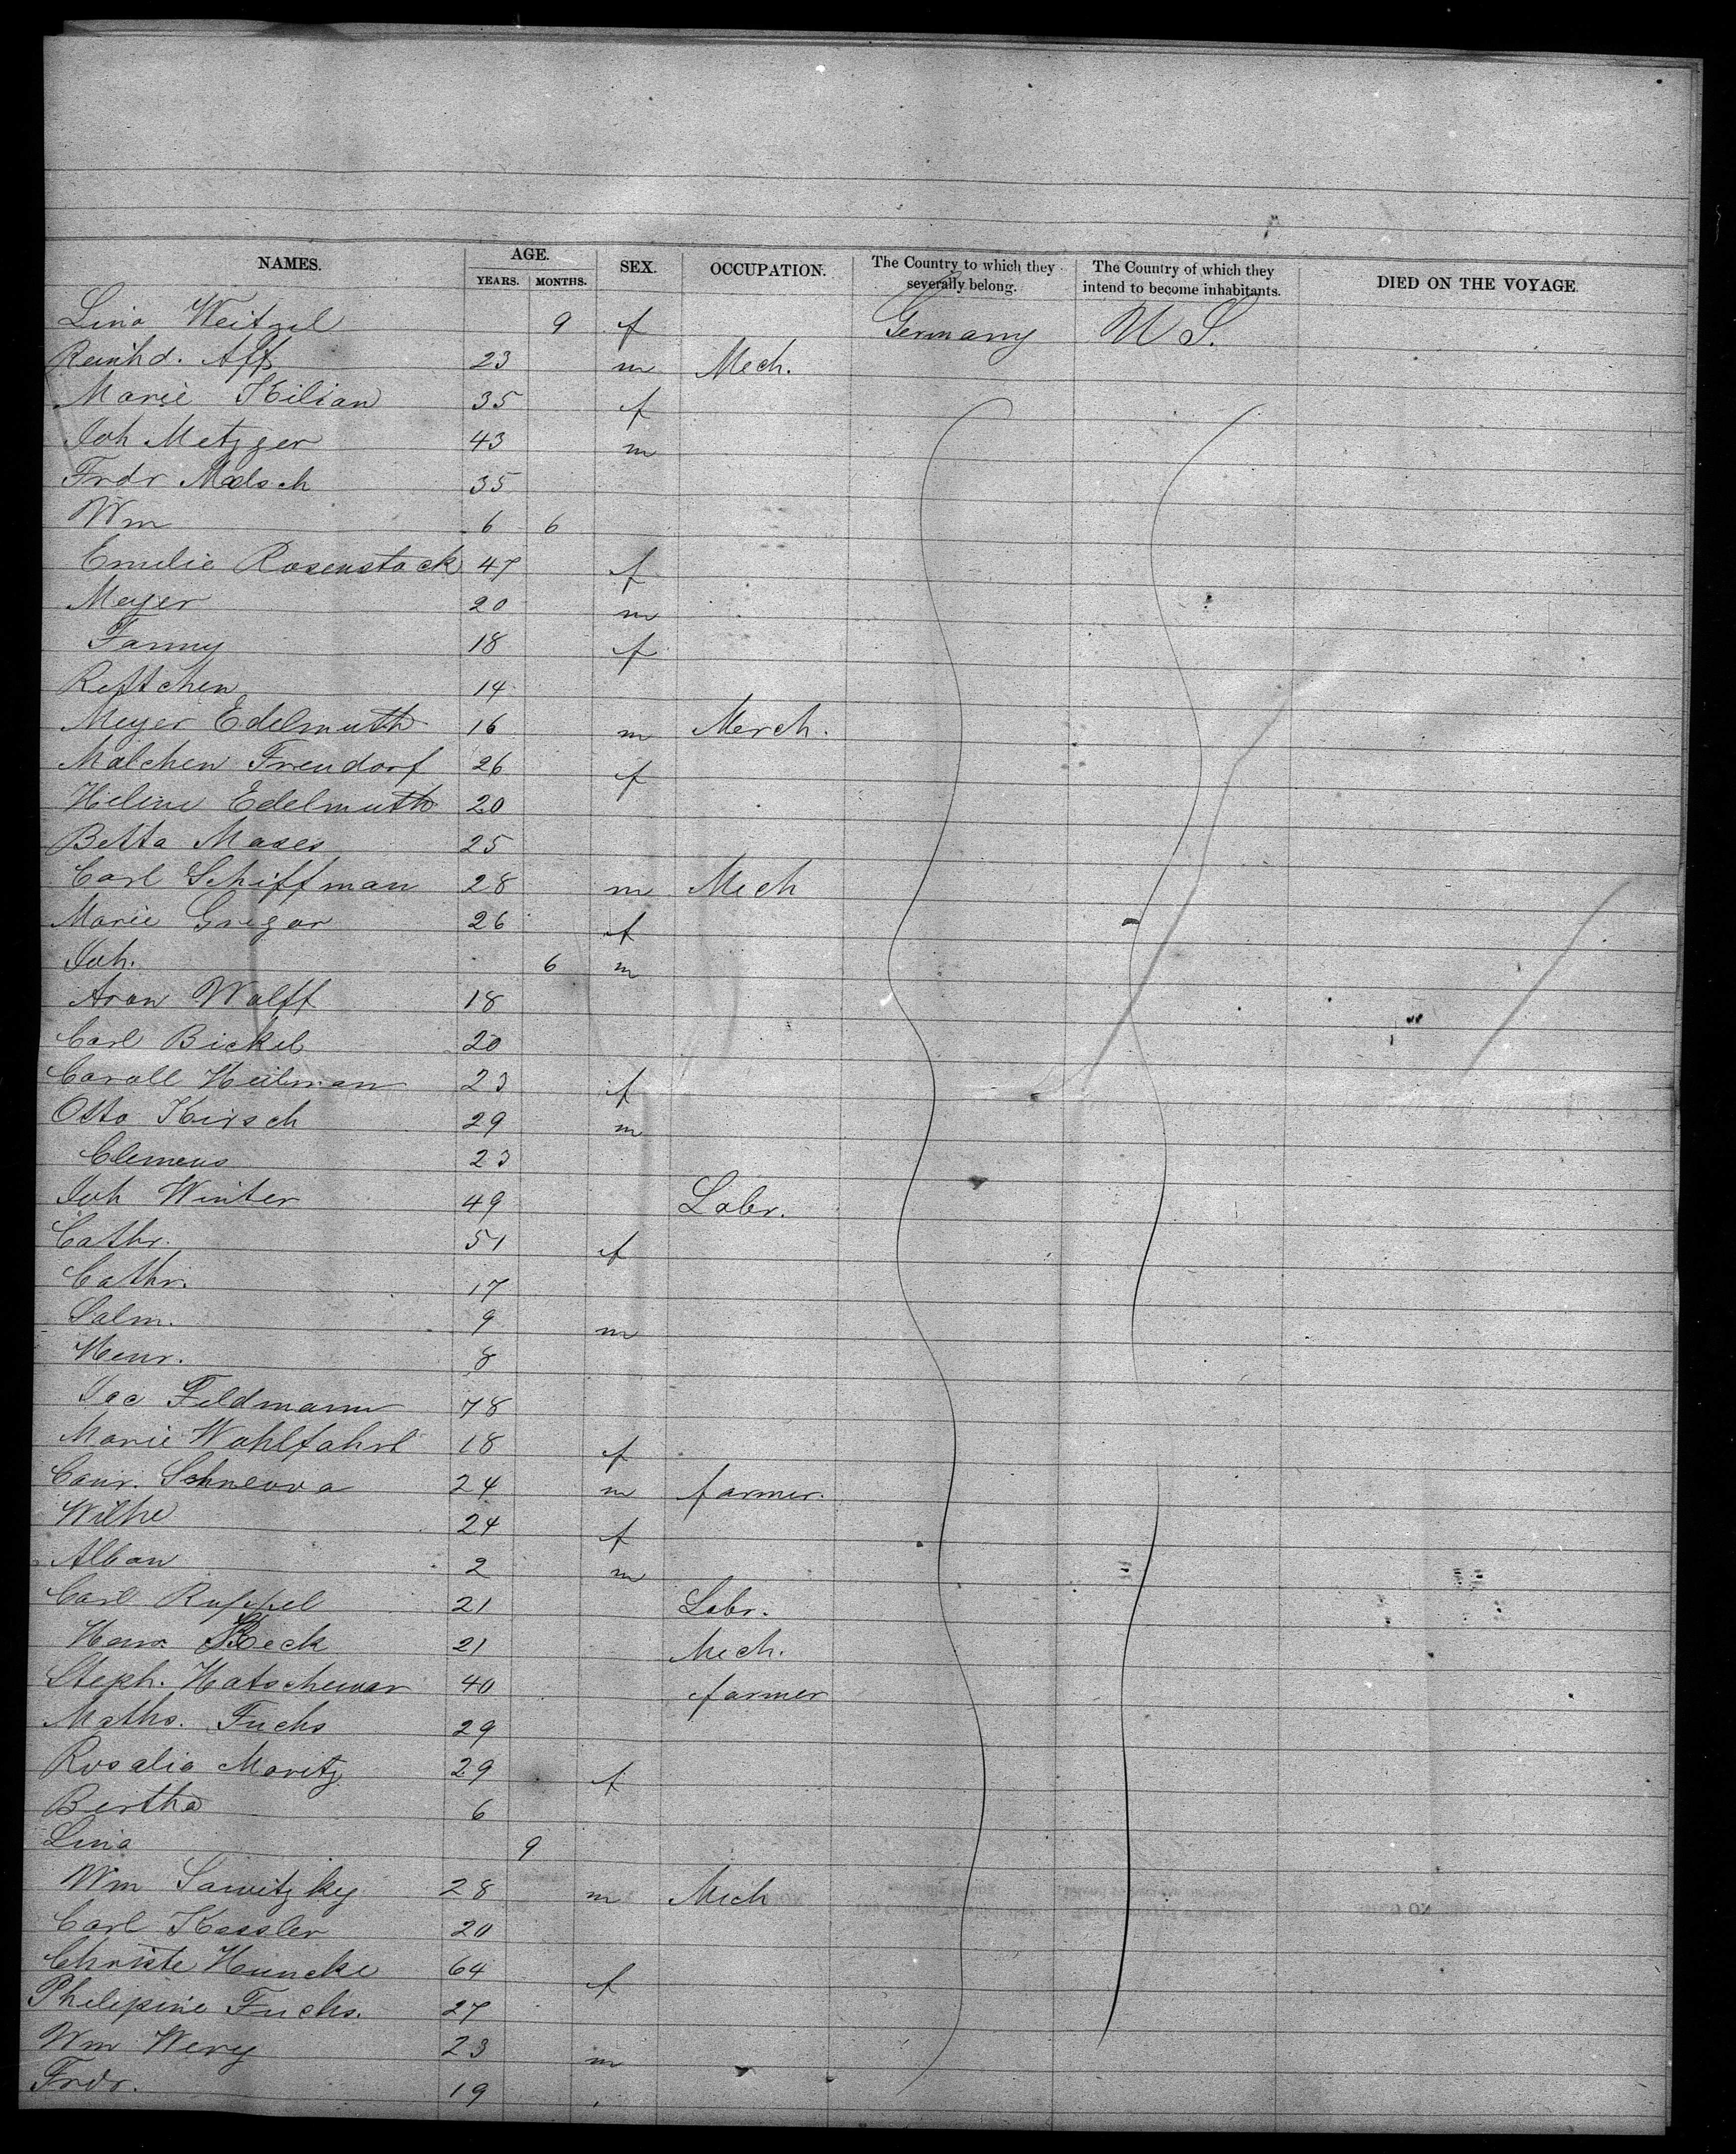 NAMES. AGE. SEX. OCCUPATION. The Country to which they severally belong. The Country of which they intend to become inhabitants. DIED ON THE VOYAGE
YEARS. MONTHS.
Lina Weitzel 9 f Germany U S.
Reinhd. Aff 23 m Mech.
Marie Kilian 35 f
Joh Metzger 43 m
Frdr Malsch 35
Wm 6 6
Emelie Rosenstock 47 f
Meyer 20 m
Fanny 18 f
Rettchen 14
Meyer Edelmuth 16 m Merch.
Malchen Freudorf 26 f
Helene Edelmuth 20
Betta Moses 25
Carl Schiffman 28 m Mech
Marie Gregor 26 f
Joh. 6 m
Aron Wolff 18
Carl Bickel 20
Caroll Heilman 23 f
Otto Kirsch 29 m
Clemens 23
Joh Winter 49 Labr.
Cathr. 51 f
Cathr. 17
Salm. 9 m
Henr. 8
Jac Feldmann 78
Marie Wohlfahrt 18 f
Conr. 24 m farmer.
Wilhe 24 f
Alban 2 m
Carl Ruppel 21 Labr.
21 Mech.
Steph. 40 farmer
Maths. Fuchs 29
Rosalia Moritz 29 f
Bertha 6
Lina 9
Wm Sawitzky 28 m Mech
Carl Kessler 20
Christe Huncke 64 f
Philipine Fuchs. 27
Wm Wery 23 m
Frdr. 19